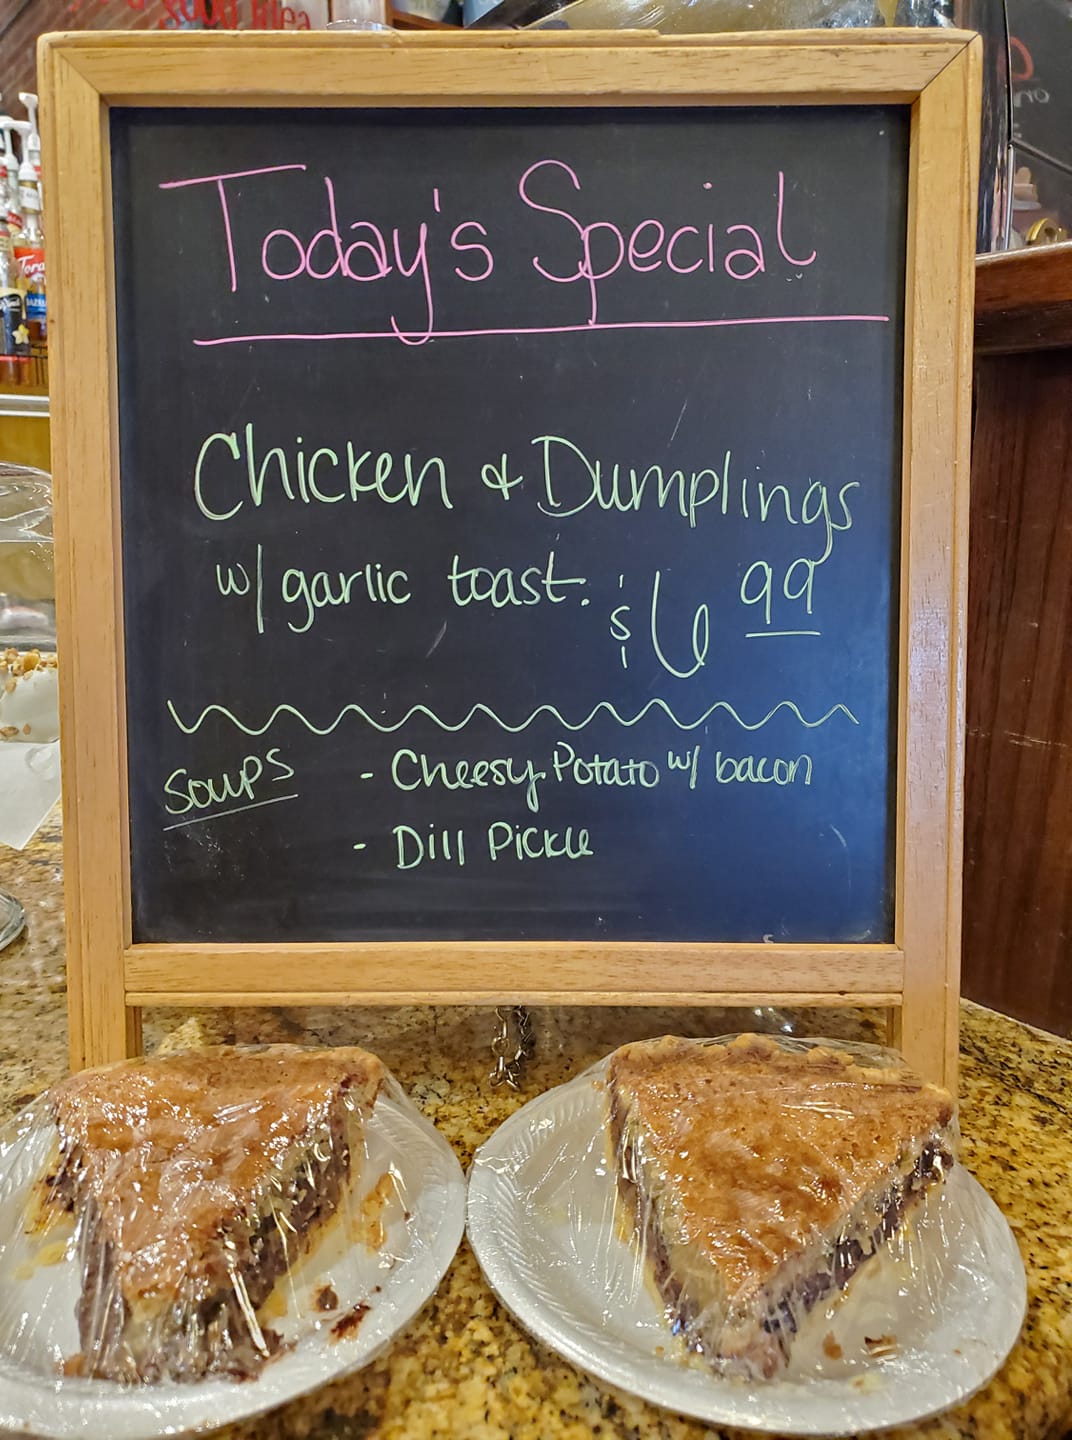 good idea
Today's Special
Chicken & Dumplings
w/ garlic toast. $6 99
Soups - Cheesy Potato w/ bacon
- Dill Pickle